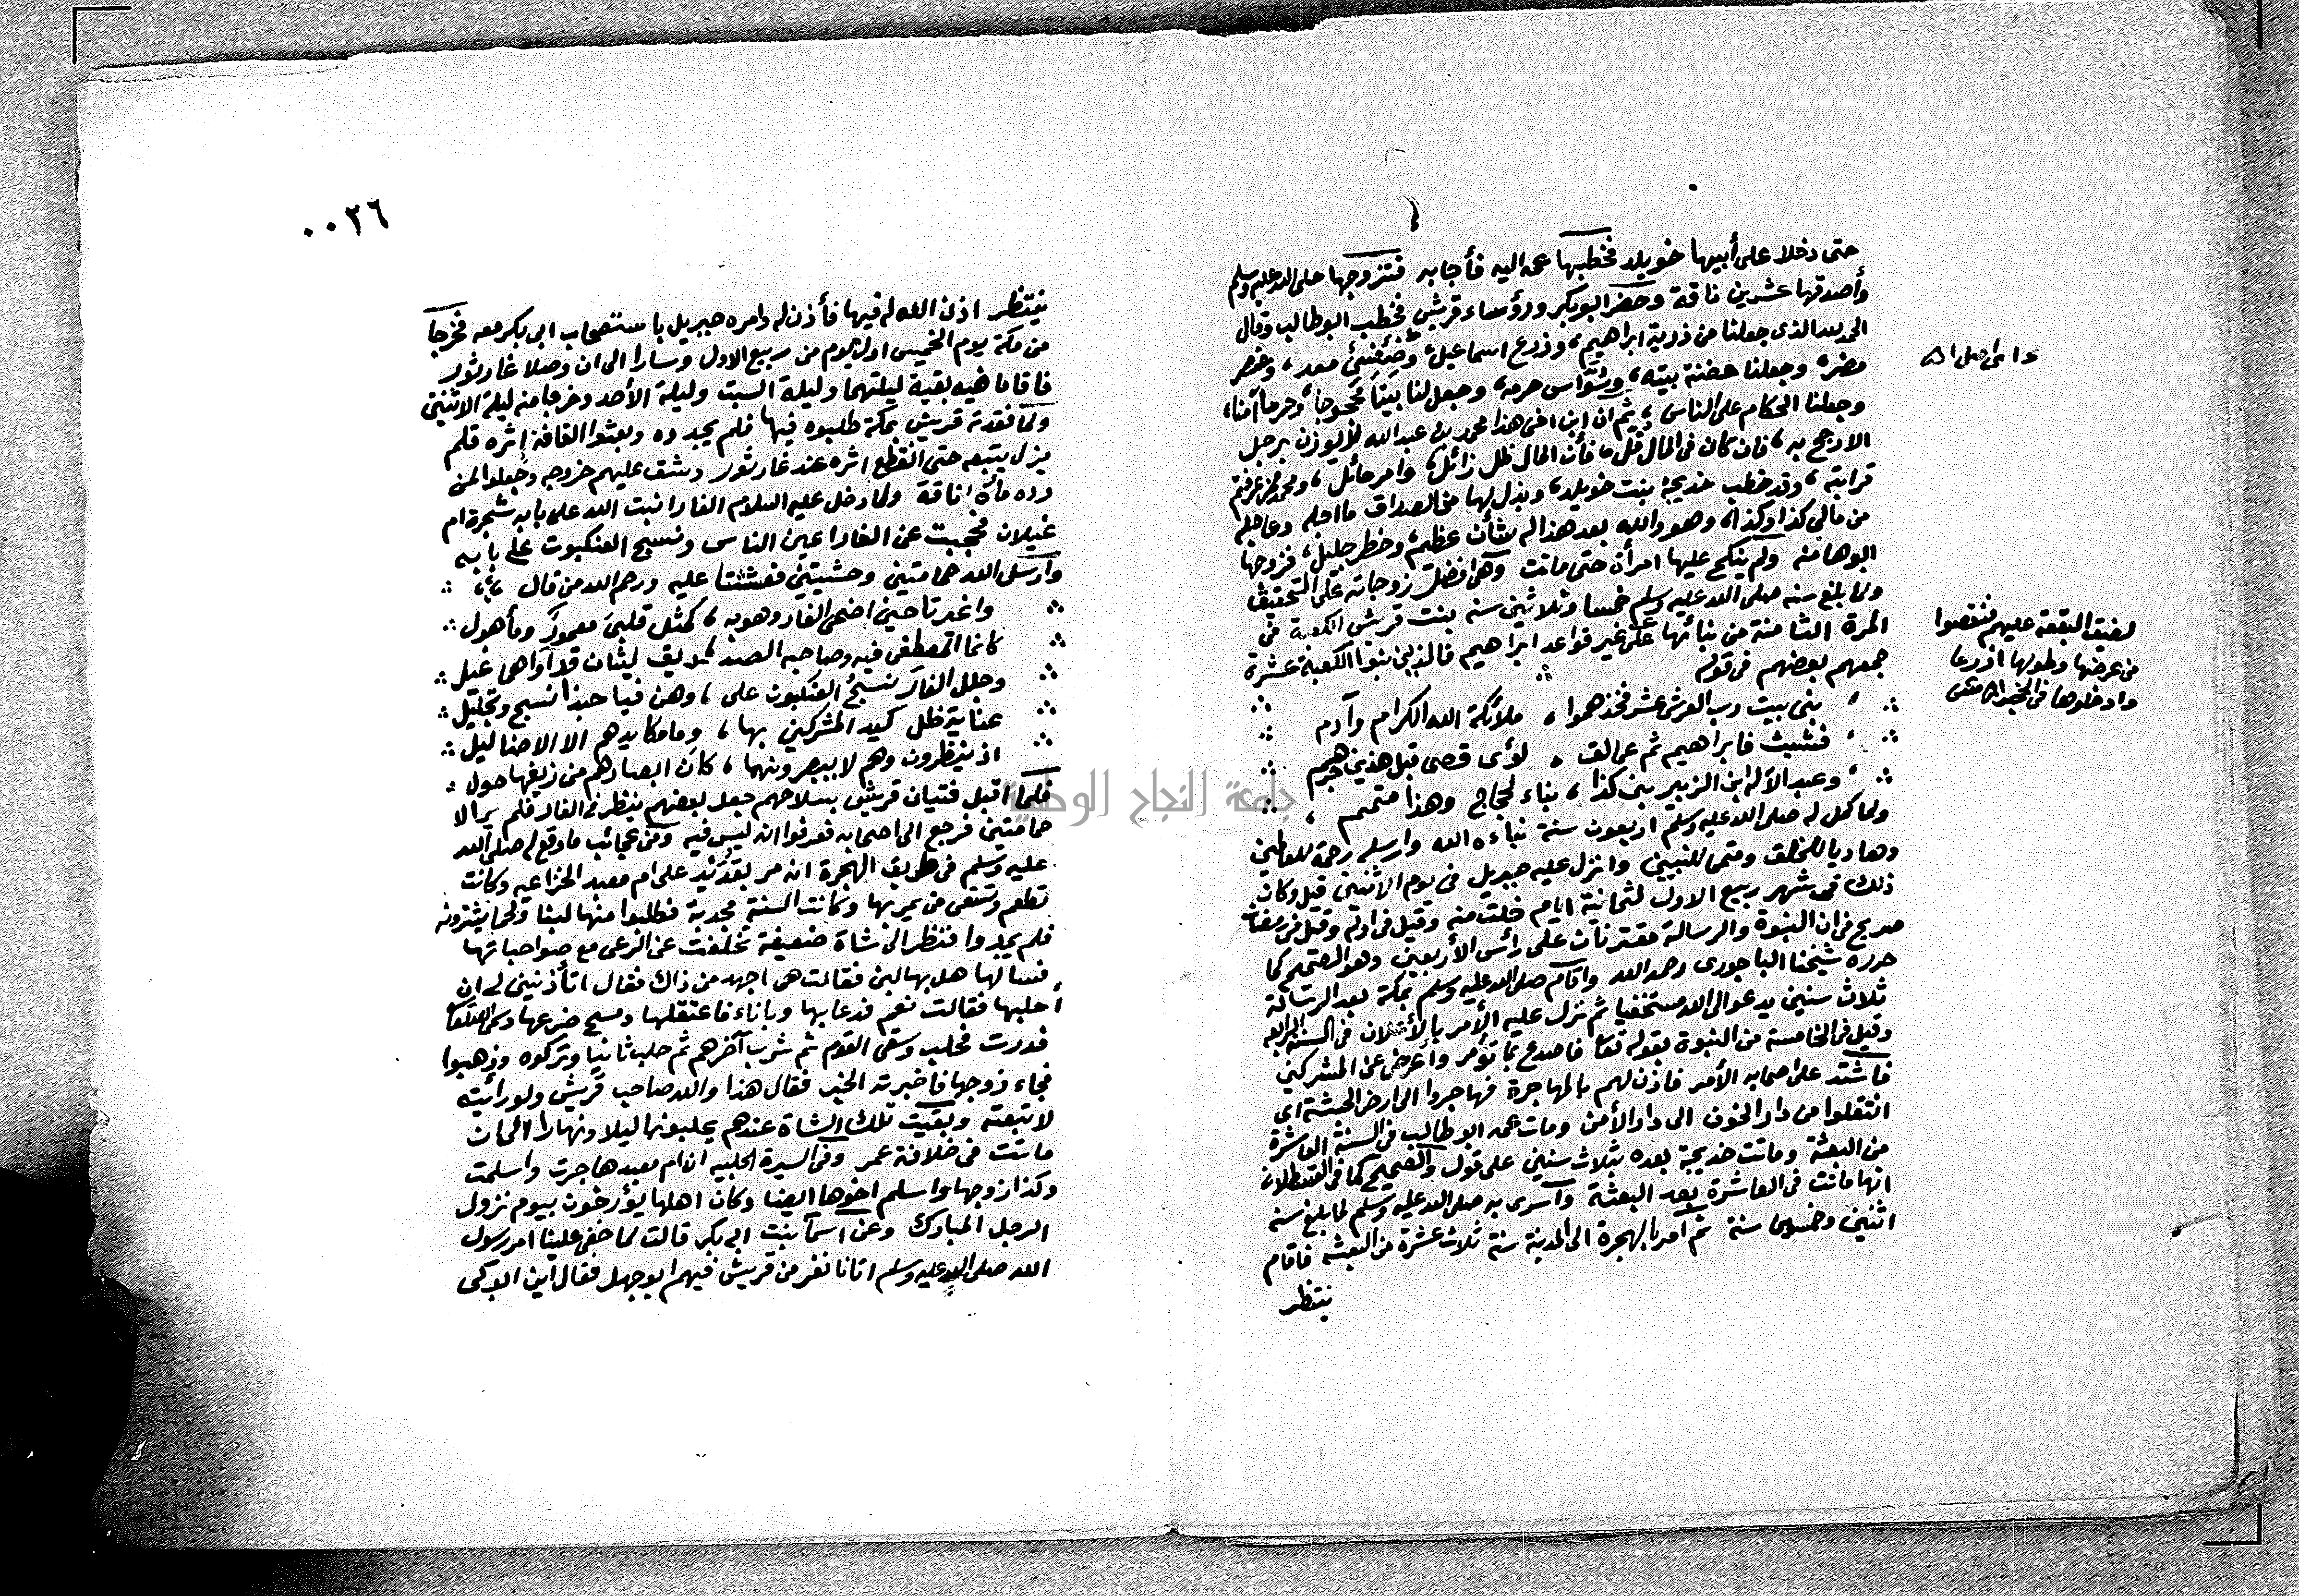 حتى دخلا على أبيها خويلد فخطبها عمه اليه فأجابه فتزوجها صلى الله عليه وسلم
وأصدقها عشرين ناقة وحضر ابو بكر ورؤساء قريش فخطب ابو طالب وقال
الحمد لله الذى جعلنا من ذرية ابراهيم، وذرع اسماعيل، وضئضئ معد، وعنصر
مضر، وجعلنا حضنة بيته، وسواس حرمه، وجعل لنا بيتا محجوجا، وحرما آمنا،
وجعلنا الحكام على الناس، ثم ان ابن اخى هذا محمد بن عبد الله لا يوزن برجل
الا رجح به، فان كان فى المال قل فأن المال ظل زائل، وامر حائل، ومحمد من عرفتم
قرابته، وقد خطب خديجة بنت خويلد، وبذل لها من الصداق ما اجله وعاجله
من مالى كذا وكذا، وهو والله بعد هذا له شأن عظيم، وخطر جليل، فزوجها
ابوها منه ولم ينكح عليها امرأة حتى ماتت وهى افضل زوجاته على التحقيق
ولما بلغ سنه صلى الله عليه وسلم خمسا وثلاثين سنه بنت قريش الكعبة فى
المرة الثامنة من بنائها على غير قواعد ابراهيم فالذين بنوا الكعبة عشرة
جمعهم بعضهم فى قوله
بنى بيت رب العرش عشر فخذهموا، ملائكة الله الكرام وآدم
فشيث فابراهيم ثم عمالق، قصى قبل هذين جرهم
وعبد الآله ابن الزبير بنى كذا، بناء لحجاج وهذا متمم
ولما كمل له صلى الله عليه وسلم اربعون سنة نباءه الله وارسله رحمة للعالمين
وهاديا للخلق وختما للنبيين وانزل عليه جبريل فى يوم الاثنين قيل وكان
ذلك فى شهر ربيع الاول لثمانية ايام خلت منه وقيل فى اوله وقيل فى رمضان
صريح فى ان النبوة والرسالة مقترنان على رأس الأربعين وهو الصحيح كما
حرره شيخنا الباجورى رحمه الله واقام صلى الله عليه وسلم بمكة بعد الرسالة
ثلاث سنين يدعو الى الله مستخفيا ثم نزل عليه الأمر بالأعلان فى السنة الرابعه
وقيل فى الخامسة من النبوة بقوله تعا فاصدع بما تؤمر وأعرض عن المشركين
فاشتد على اصحابه الأمر فاذن لهم بالمهاجرة فهاجروا الى ارض الحبشة اى
انتقلوا من دار الخوف الى دار الأمن ومات عمه ابو طالب فى السنة العاشرة
من البعثة وماتت خديجة بعده بثلاث سنين على قول والصحيح كما فى القسطلانى
انها ماتت فى العاشرة بعد البعثة وأسرى به صلى الله عليه وسلم لما بلغ سنه
اثنين وخمسين سنة ثم أمر بالهجرة الى المدينة سنة ثلاث عشرة من البعثه فاقام
ينتظر
لضيق النفقة عليهم فنقصوا
من عرضها وطولها اذرعا
وادخلوها فى الحجر
٠٠٢٦
ينتظر اذن الله له فيها فأذن له وامره جبريل باستصحاب ابى بكر معه فخرجا
من مكة يوم الخميس اول يوم من ربيع الاول وسارا الى ان وصلا غار ثور
فاقاما فيه بقية ليلتهما وليلة السبت وليلة الأحد وخرجا منه ليلة الاثنين
ولما فقدته قريش بمكة طلبوه فيها فلم يجدوه وبعثوا القافة إثره فلم
يزل يتبعه حتى انقطع اثره عند غار ثور وشق عليهم خروجه وجعلوا لمن
رده مأة ناقة ولما دخل عليه السلام الغار انبت الله على بابه شجرة ام
غيلان فحجبت عن الغار اعين الناس ونسج العنكبوت على بابه
وأرسل الله حمامتين وحشيتين فعششتا عليه ورحم الله من قال
واغيرتا حين اضحى الغار وهو به، كمثل قلبى معمور ومأهول
كانما المصطفى فيه وصاحبه الصديق ليثان قد آواهما غيل
وجلل الغار نسج العنكبوت على، وهن فيا حبذا نسج وتجليل
عناية ظل كيد المشركين بها، وما مكايدهم الا الاضاليل
اذ ينظرون وهم لا يبصرونهما، كان ابصارهم من زيغها حول
فلما اقبل فتيان قريش بسلاحهم جعل بعضهم ينظر فى الغار فلم ير الا
حمامتين فرجع الى اصحابه فعرفوا انه ليس فيه ومن عجائب ما وقع له صلى الله
عليه وسلم فى طريق الهجرة انه مر بقديد على ام معبد الخزاعيه وكانت
تطعم وتسقى من يمر بها وكانت السنة مجدبة فطلبوا منها لبنا ولحما يشترونه
فلم يجدوا فنظر الى شاة ضعيفة تخلفت عن الرعى مع صواحباتها
فسالها هل بها لبن فقالت هى اجهد من ذلك فقال اتأذنين لى ان
أحلبها فقالت نعم فدعا بها وباناء فاعتقلها ومسح ضرعها وسمى الله تعا
فدرت فحلب وسقى القوم ثم شرب آخرهم ثم حلب ثانيا وتركوه وذهبوا
فجاء زوجها فاخبرته الخبر فقال هذا والله صاحب قريش ولو رأيته
لاتبعته وبقيت تلك الشاة عندهم يحلبونها ليلا ونهارا الى ان
ماتت فى خلافة عمر وفى السيرة الحلبيه ان ام معبد هاجرت واسلمت
وكذا زوجها واسلم اخوها ايضا وكان اهلها يؤرخون بيوم نزول
الرجل المبارك وعن اسماء بنت ابى بكر قالت لما خفى علينا امر رسول
الله صلى الله عليه وسلم اتانا نفر من قريش فيهم ابو جهل فقال اين ابوكى
جامعة النجاح الوطنية